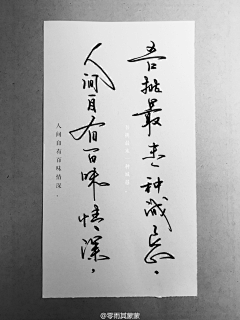 吾挑最 一种
人间自有百味情深。
人间自有百味情深。
@零雨其蒙蒙